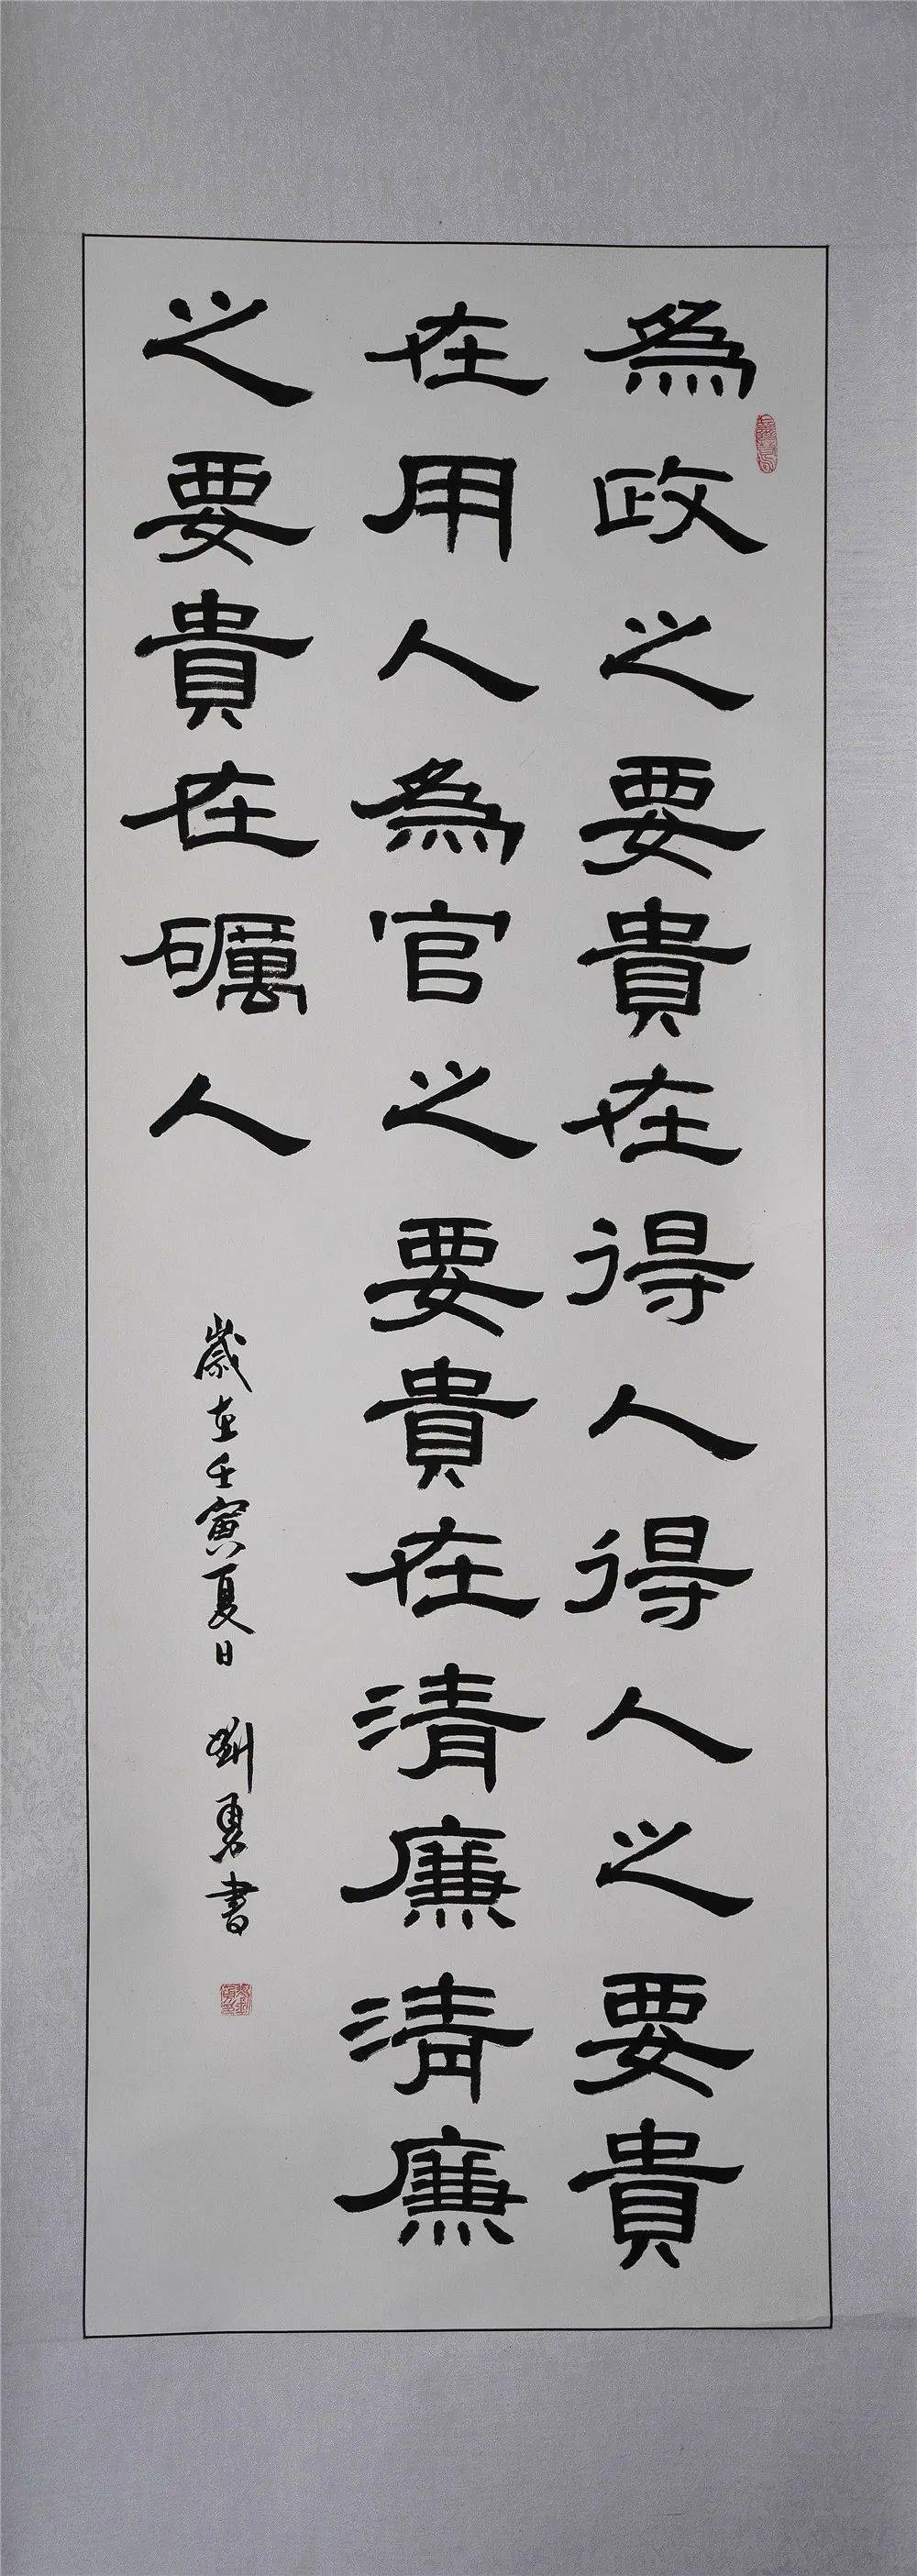 為政之要貴在得人得人之要貴
在用人為官之要貴在清廉清廉
之要貴在礪人
歲在壬寅夏日 劉勇書